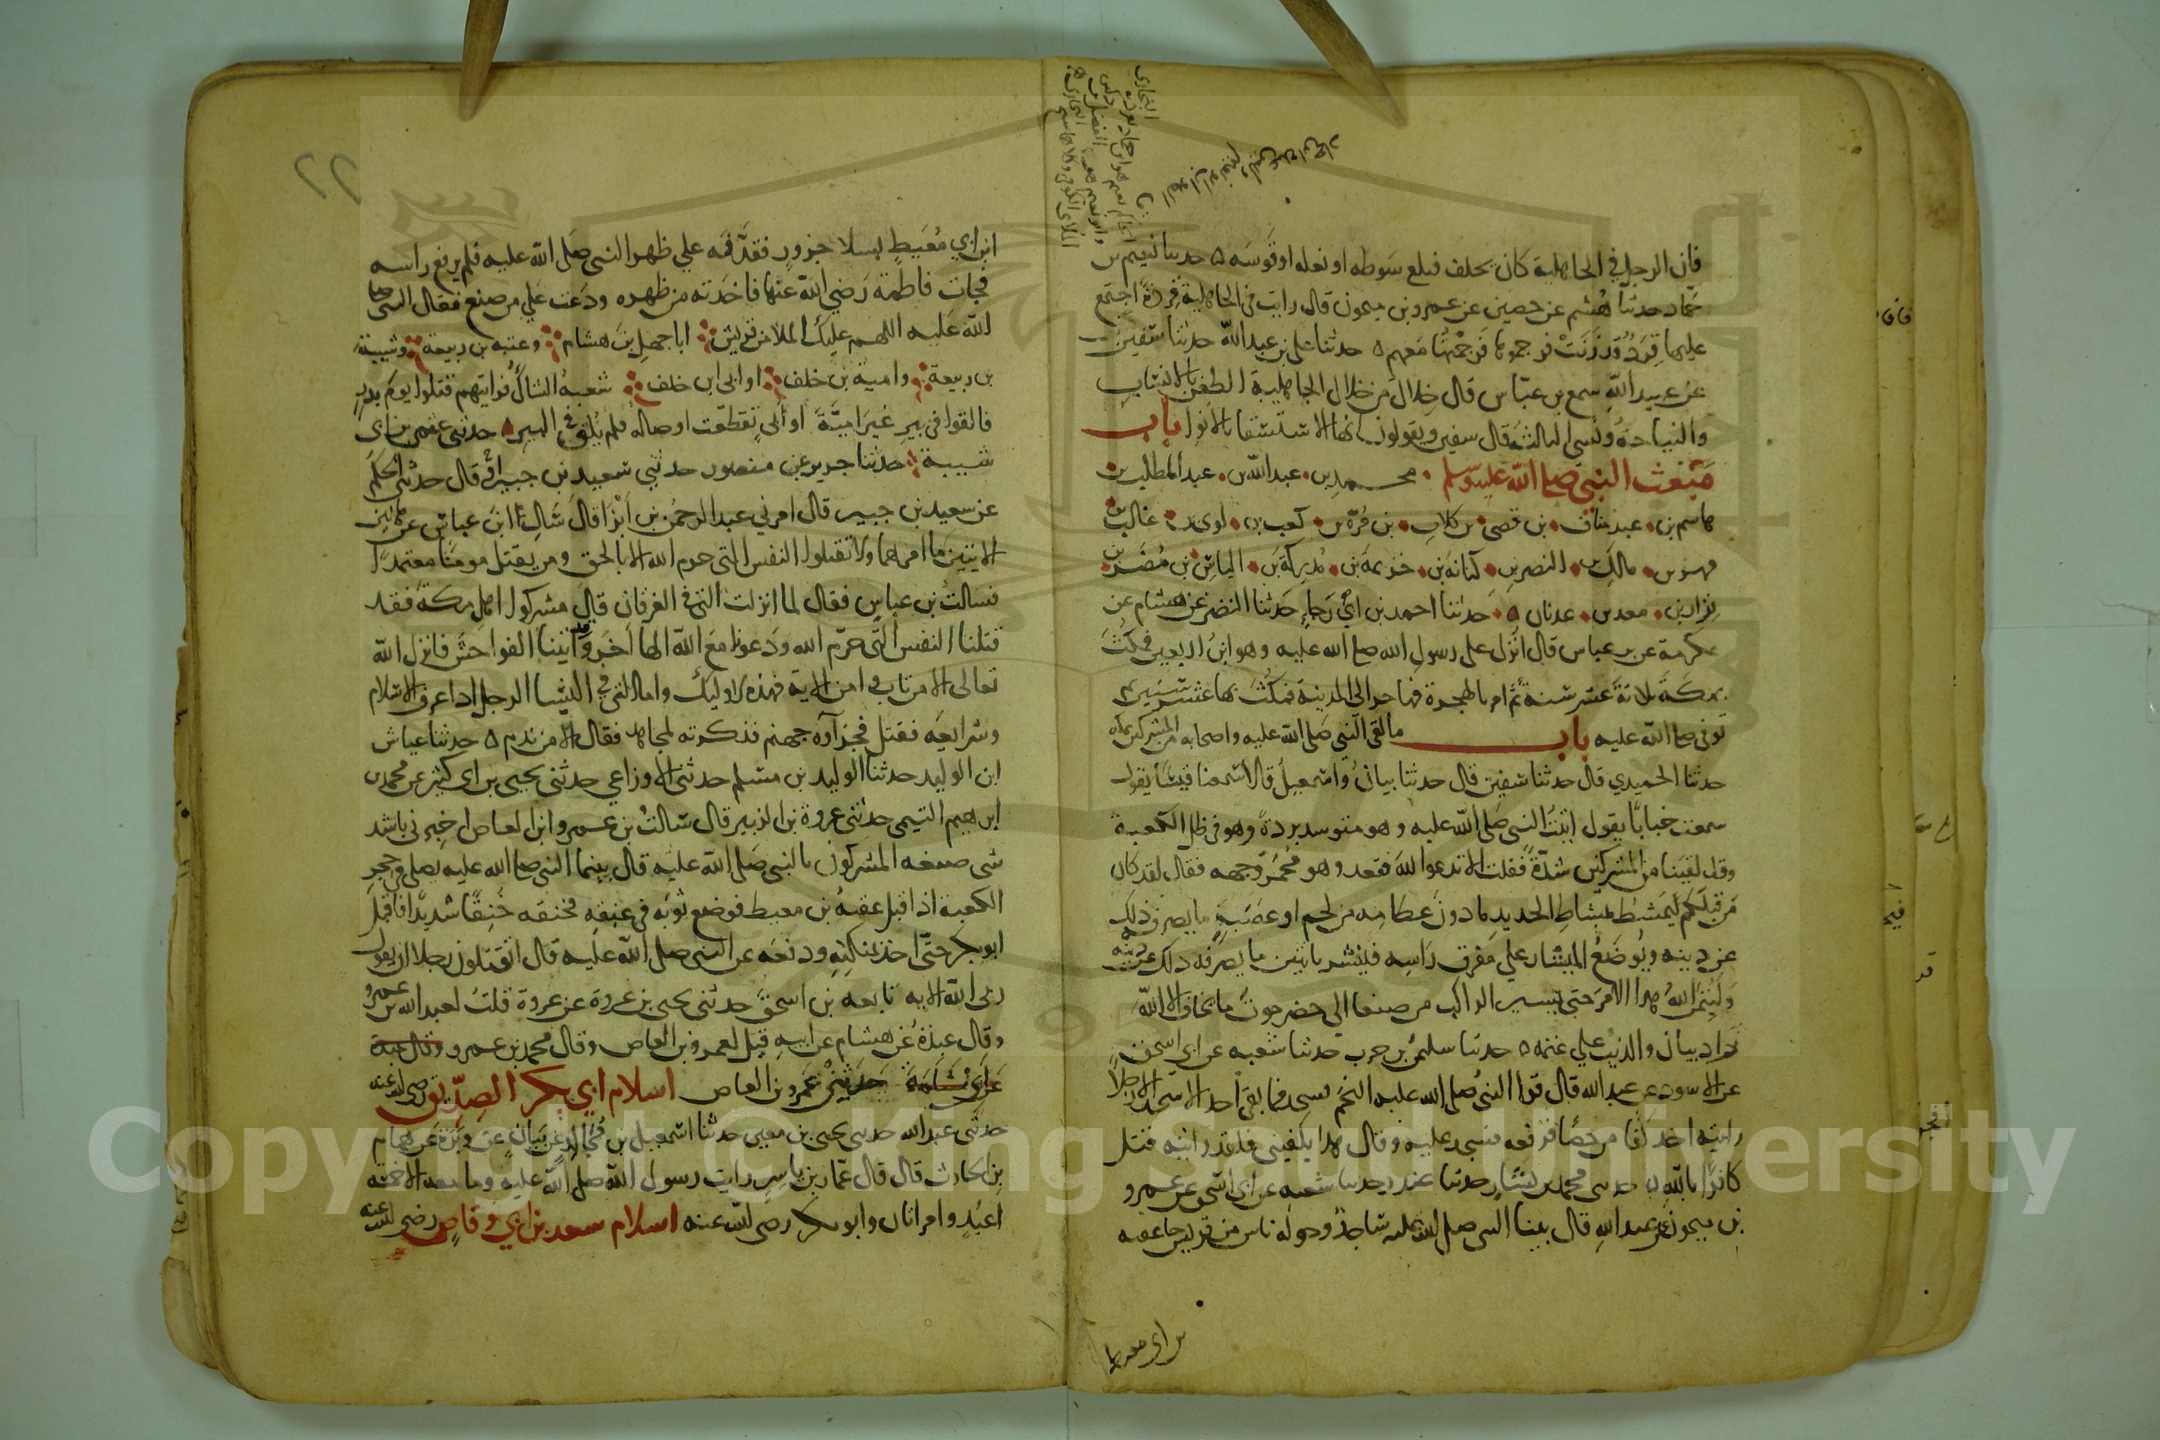 فان الرجل في الجاهلية كان يحلف فيلقي سوطه او نعله او قوسه ه حدثنا نعيم بن
حماد حدثنا هشيم عن حصين عن عمرو بن ميمون قال رايت في الجاهلية قردة اجتمع
عليها قردة قد زنت فرجموها فرجمتها معهم ه حدثنا علي بن عبد الله حدثنا سفين
عن عبيد الله سمع بن عباس قال خلال من خلال الجاهلية الطعن في الانساب
والنياحة ونسي الثالثة قال سفين ويقولون انها الاستسقا بالانوا باب
مبعث النبي صلى الله عليه وسلم محمد بن عبد الله بن عبد المطلب بن
هاشم بن عبد مناف بن قصي بن كلاب بن مرة بن كعب بن لوى بن غالب بن
فهر بن مالك بن النضر بن كنانة بن خزيمة بن مدركة بن الياس بن مضر بن
نزار بن معد بن عدنان ه حدثنا احمد بن ابي رجاء حدثنا النضر عن هشام عن
عكرمة عن بن عباس قال انزل على رسول الله صلى الله عليه وهو ابن اربعين فمكث
بمكة ثلاثة عشر سنة ثم امر بالهجرة فهاجر الى المدينة فمكث بها عشر سنين ثم
توفي صلى الله عليه باب ما لقي النبي صلى الله عليه واصحابه من المشركين بمكة
حدثنا الحميدي قال حدثنا سفين قال حدثنا بيان واسمعيل قالا سمعنا قيسا يقول
سمعت خبابا يقول اتيت النبي صلى الله عليه وهو متوسد بردة وهو في ظل الكعبة
وقد لقينا من المشركين شدة فقلت الا تدعوا الله فقعد وهو محمر وجهه فقال لقد كان
من قبلكم ليمشط بمشاط الحديد ما دون عظامه من لحم او عصب ما يصرفه ذلك
عن دينه ويوضع الميشار على مفرق راسه فيشق باثنين ما يصرفه ذلك عن دينه
وليتمن الله هذا الامر حتى يسير الراكب من صنعا الى حضرموت ما يخاف الا الله
زاد بيان والذئب على غنمه ه حدثنا سليمن بن حرب حدثنا شعبه عن ابي اسحق
عن الاسود عن عبد الله قال قرا النبي صلى الله عليه النجم فسجد فما بقي احد الا سجد الا رجلا
رايته اخذ كفا من حصا فرفعه فسجد عليه وقال هذا يكفيني فلقد رايته قتل
كافرا بالله ه حدثنى محمد بن بشار حدثنا غندر حدثنا شعبه عن ابي اسحق عن عمرو
بن ميمون عن عبد الله قال بينا النبي صلى الله عليه ساجد وحوله ناس من قريش جا عقبه
بن ابي معيط
ابن ابي معيط بسلا جزور فقذفه علي ظهر النبي صلى الله عليه فلم يرفع راسه
فجات فاطمة رضي الله عنها فاخذته من ظهره ودعت علي من صنع فقال النبي صلى
الله عليه اللهم عليك الملا من قريش ابا جهل بن هشام وعتبه بن ربيعة وشيبة
بن ربيعة وامية بن خلف او ابي ابن خلف شعبة الشاك فرايتهم قتلوا يوم بدر
فالقوا في بير غير امية او ابي تقطعت اوصاله فلم يلق في البير ه حدثني عثمن بن ابي
شيبة حدثنا جرير عن منصور حدثني سعيد بن جبير او قال حدثني الحكم
عن سعيد بن جبير قال امرني عبد الرحمن بن ابزا قال سال ابن عباس عن هاتين
الايتين ما امرهما ولا تقتلوا النفس التي حرم الله الا بالحق ومن يقتل مومنا متعمدا
فسالت بن عباس فقال لما انزلت التي في الفرقان قال مشركوا اهل مكة فقد
قتلنا النفس التي حرم الله ودعونا مع الله الها اخر وقد اتينا الفواحش فانزل الله
تعالى الا من تاب وامن الاية فهذه لاوليك واما التي في النسا الرجل اذا عرف الاسلام
وشرايعه فقتل فجزاوه جهنم فذكرته لمجاهد فقال الا من ندم ه حدثنا عياش
ابن الوليد حدثنا الوليد بن مسلم حدثني الاوزاعي حدثني يحيى بن ابي كثير عن محمد بن
ابرهيم التيمي حدثني عروة بن الزبير قال سالت بن عمرو ابن العاص اخبرني باشد
شي صنعه المشركون بالنبي صلى الله عليه قال بينما النبي صلى الله عليه يصلي في حجر
الكعبة اذ اقبل عقبة بن معيط فوضع ثوبه في عنقه فخنقه خنقا شديدا فاقبل
ابو بكر حتى اخذ بمنكبه ودفعه عن النبي صلى الله عليه قال اتقتلون رجلا ان يقول
ربي الله الايه تابعه بن اسحق حدثني يحيى بن عروة عن عروة قلت لعبد الله بن عمرو
وقال عبدة عن هشام عن ابيه قيل لعمرو بن العاص وقال محمد بن عمرو وقال عبدة
عن ابي سلمة حدثني عمرو بن العاص اسلام ابي بكر الصديق رضي الله عنه
حدثني عبد الله حدثني يحيى بن معين حدثنا اسمعيل بن مجالد عن بيان عن وبرة عن همام
بن الحارث قال قال عمار بن ياسر رايت رسول الله صلى الله عليه وما معه الا خمسة
اعبد وامراتان وابو بكر رضي الله عنه اسلام سعد بن ابي وقاص رضي الله عنه
Copyright © King Saud University